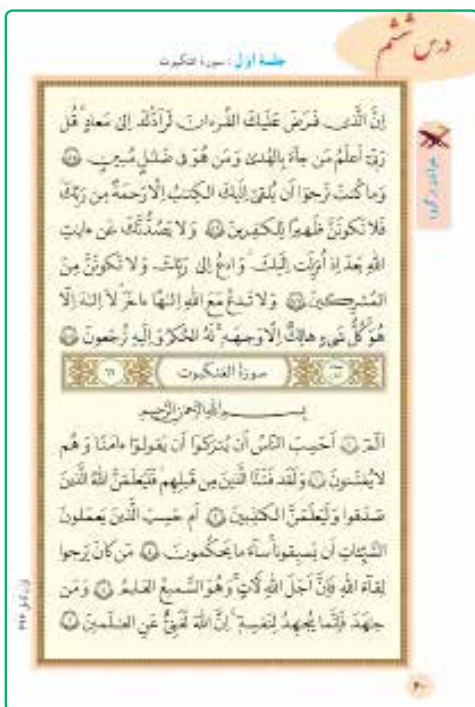 درس ششم
جلسهٔ اول : سورهٔ عنکبوت
إِنَّ الَّذی فَرَضَ عَلَیکَ القُرءانَ لَرآدُّکَ اِلیٰ مَعادٍ قُل
رَبّی اَعلَمُ مَن جاءَ بِالهُدیٰ وَ مَن هُوَ فی ضَلٰلٍ مُبینٍ ۸۵
وَ ما کُنتَ تَرجوا اَن یُلقیٰ اِلَیکَ الکِتٰبُ اِلّا رَحمَةً مِن رَبِّکَ
فَلا تَکونَنَّ ظَهیرًا لِلکٰفِرینَ ۸۶ وَ لا یَصُدُّنَّکَ عَن ءایٰتِ
اللّٰهِ بَعدَ اِذ اُنزِلَت اِلَیکَ وَ ادعُ اِلیٰ رَبِّکَ وَ لا تَکونَنَّ مِنَ
المُشرِکینَ ۸۷ وَ لا تَدعُ مَعَ اللّٰهِ اِلٰهًا ءاخَرَ لا اِلٰهَ اِلّا
هُوَ کُلُّ شَیءٍ هالِکٌ اِلّا وَجهَهٗ لَهُ الحُکمُ وَ اِلَیهِ تُرجَعونَ ۸۸
سورة العنکبوت
بسم الله الرحمن الرحیم
الٓمٓ ۱ اَحَسِبَ النّاسُ اَن یُترَکوا اَن یَقولوا ءامَنّا وَ هُم
لا یُفتَنونَ ۲ وَ لَقَد فَتَنَّا الَّذینَ مِن قَبلِهِم فَلَیَعلَمَنَّ اللّٰهُ الَّذینَ
صَدَقوا وَ لَیَعلَمَنَّ الکٰذِبینَ ۳ اَم حَسِبَ الَّذینَ یَعمَلونَ
السَّیِّئاتِ اَن یَسبِقونا ساءَ ما یَحکُمونَ ۴ مَن کانَ یَرجوا
لِقاءَ اللّٰهِ فَاِنَّ اَجَلَ اللّٰهِ لَآتٍ وَ هُوَ السَّمیعُ العَلیمُ ۵ وَ مَن
جٰهَدَ فَاِنَّما یُجٰهِدُ لِنَفسِهٖ اِنَّ اللّٰهَ لَغَنیٌّ عَنِ العٰلَمینَ ۶
۴۰